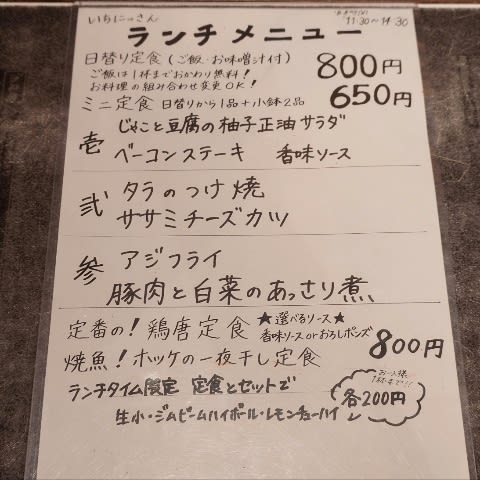 いちにっさん
ランチメニュー
11:30~14:30
日替り定食(ご飯・お味噌汁付) 800円
ご飯は1杯までおかわり無料!
お料理の組み合わせ変更OK!
ミニ定食 日替りから1品+小鉢2品 650円
壱 じゃこと豆腐の柚子正油サラダ
ベーコンステーキ 香味ソース
弐 タラのつけ焼
ササミチーズカツ
参 アジフライ
豚肉と白菜のあっさり煮
定番の!鶏唐定食 ★選べるソース★
香味ソースorおろしポンズ
焼魚!ホッケの一夜干し定食 800円
ランチタイム限定 定食とセットで
お一人様
1杯まで!!
各200円
生小・ジムビームハイボール・レモンチューハイ